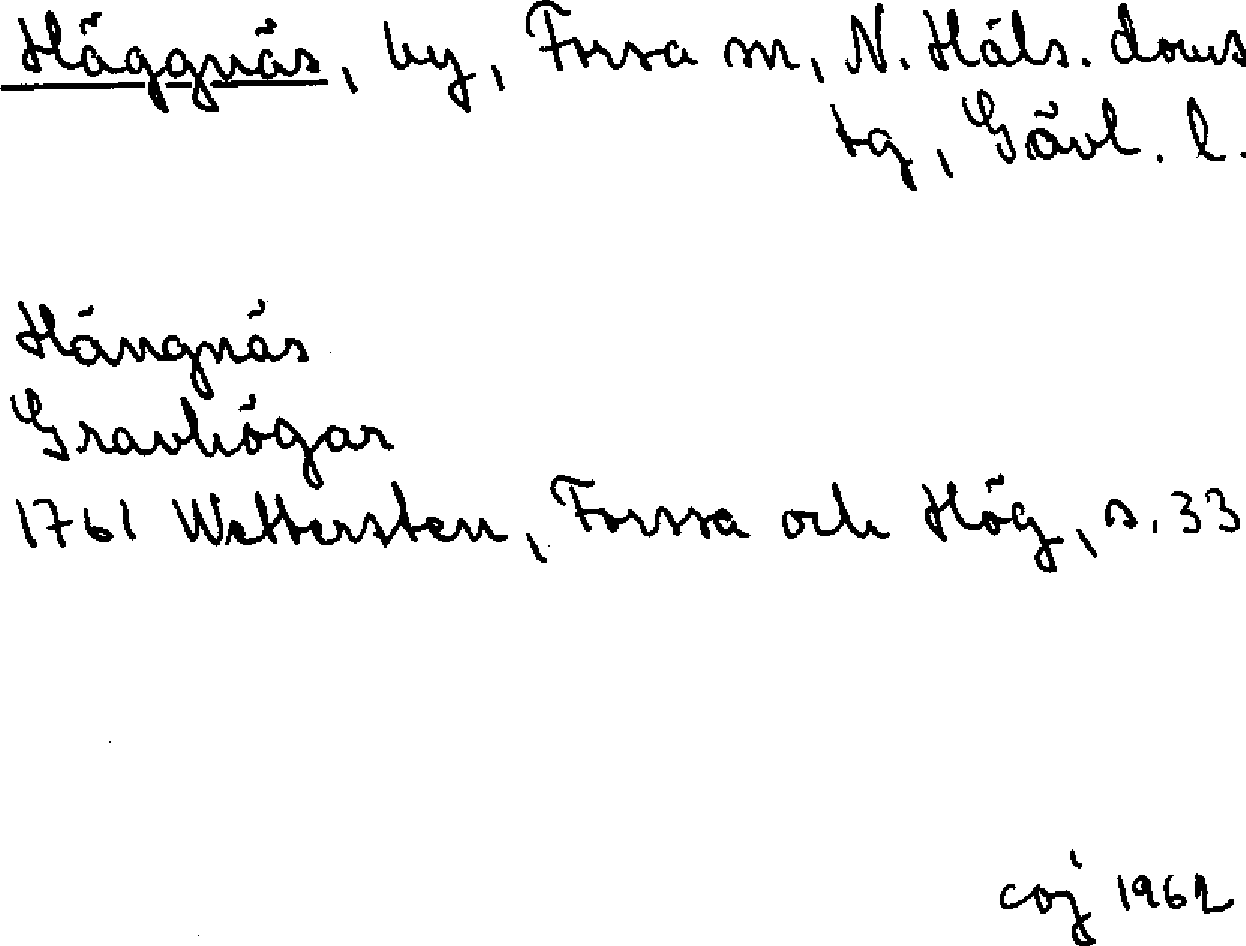 Häggnäs, by, Forsa sn, N. Häls. doms
tg, Gävl. l.
Hängnäs
Gravhögar
1761 Wettersten, Forssa och Hög, s. 33
coj 1962